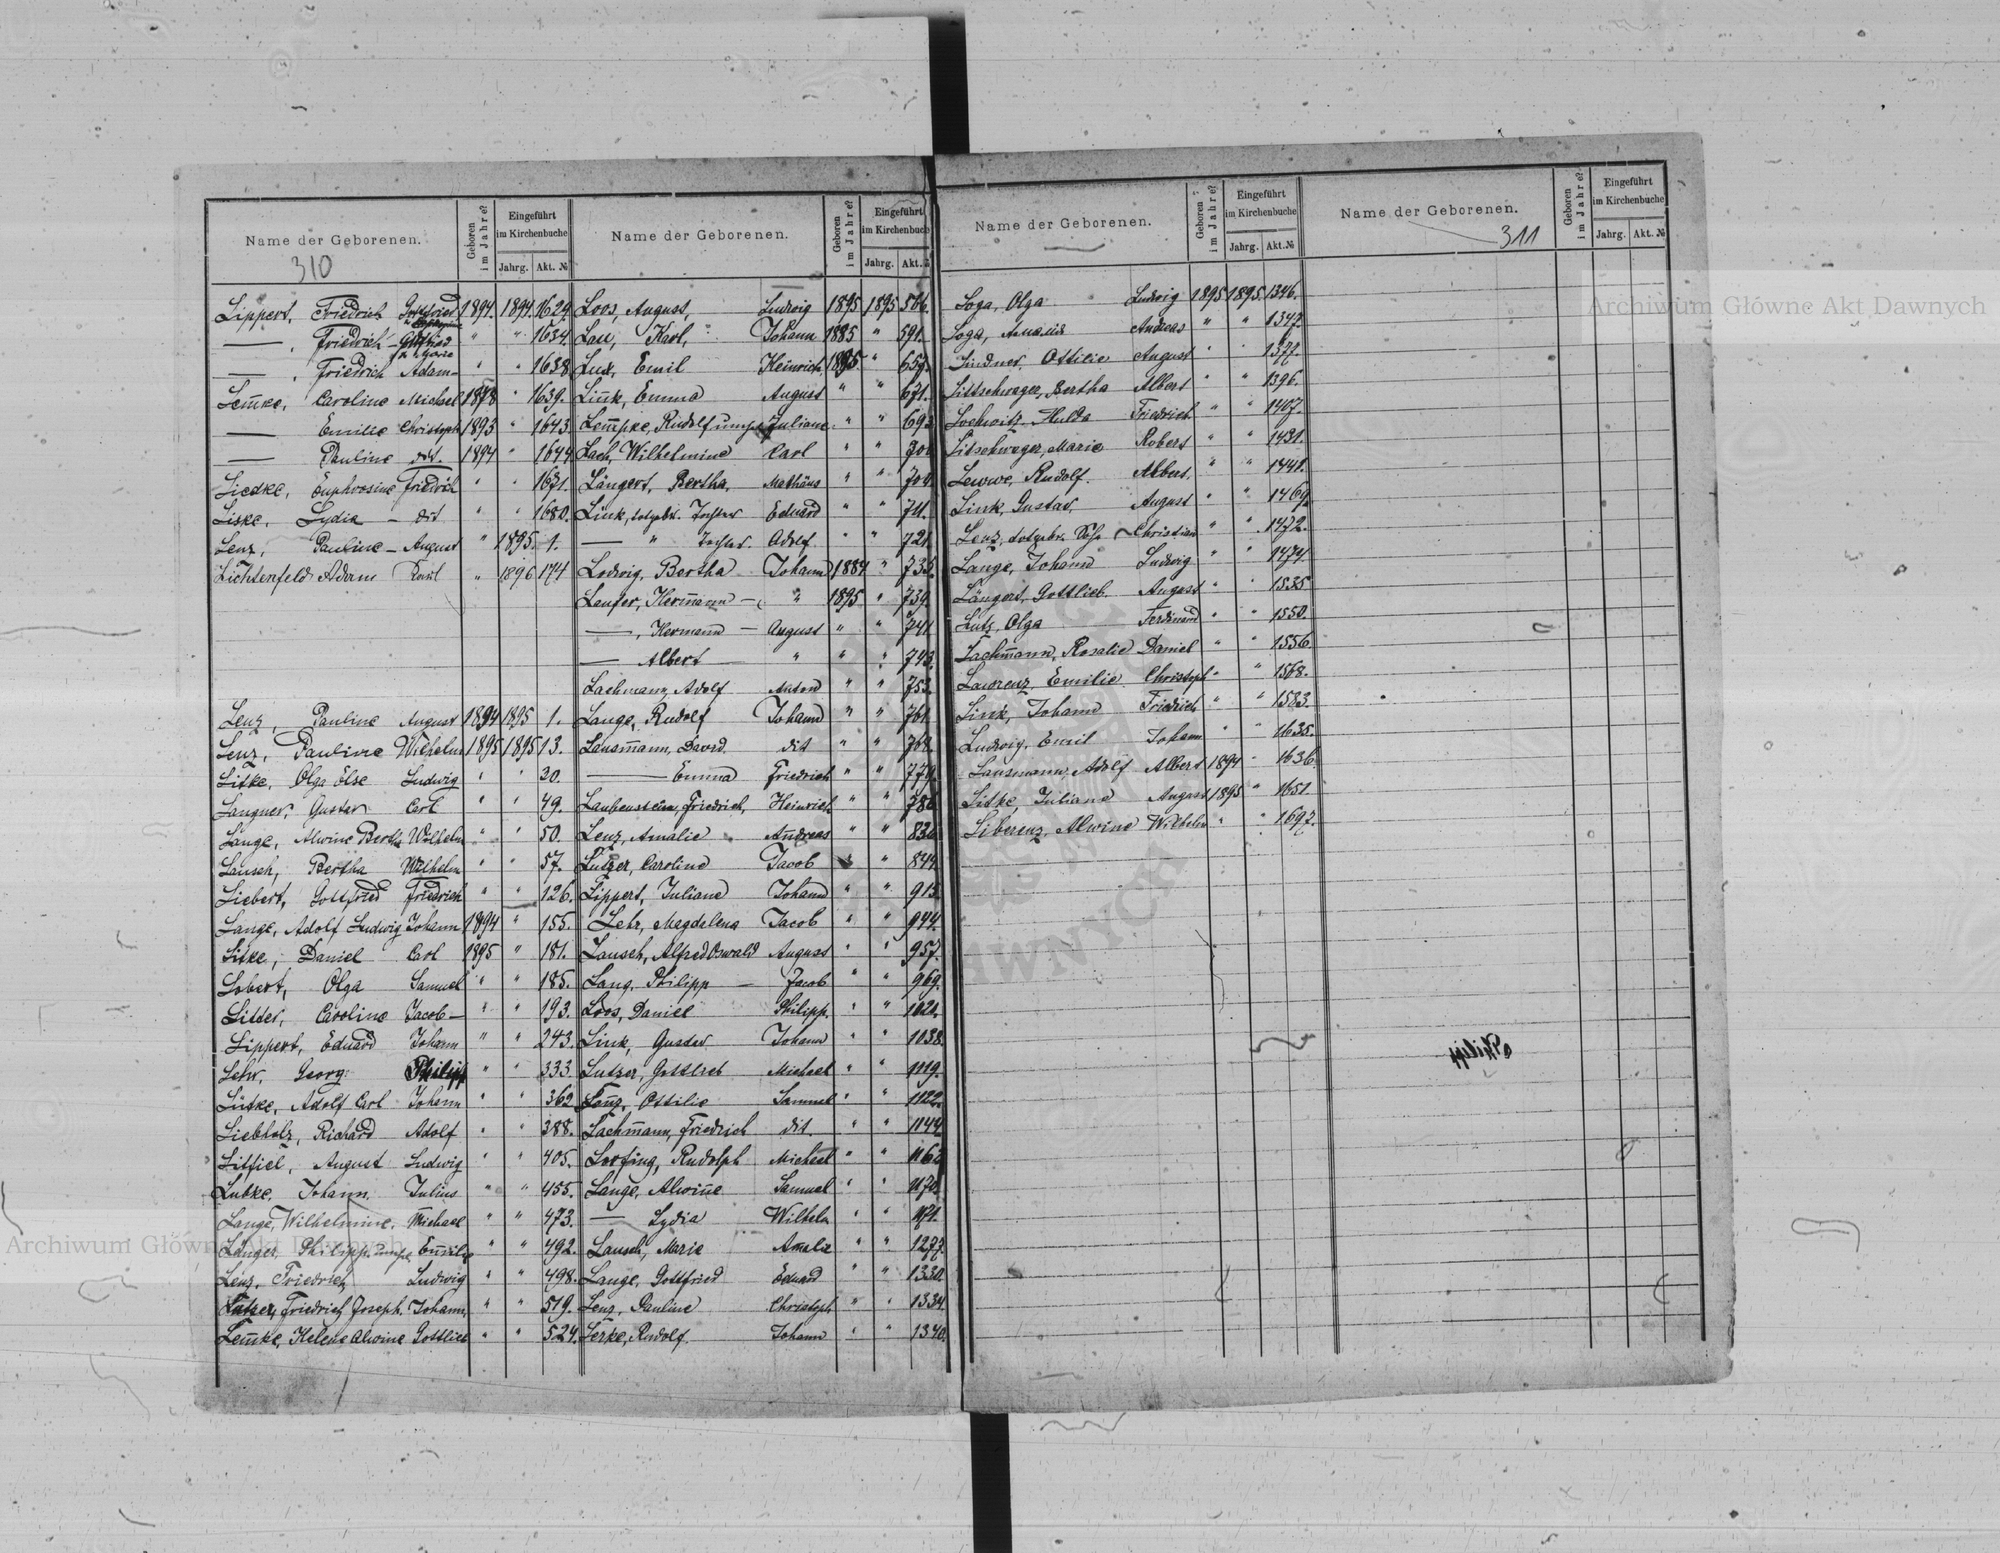 Name der Geborenen.
310
Geboren im Jahre?
Eingeführt im Kirchenbuche
Jahrg. Akt. №
Lippert, Friedrich Gottfried 1894. 1894. 1629
—, Friedrich Gottfried " " 1634.
—, Friedrich Adam " " 1638
Lemke, Caroline Michael 1878 " 1639.
— Emilie Christoph 1893 " 1643.
— Pauline dit. 1894 " 1644
Liedke, Euphrosine Friedrich " " 1651.
Liske, Lydia – dit " " 1680.
Lenz, Pauline – August " 1895. 1.
Lichtenfeld Adam " 1896 174
Lenz, Pauline August 1894 1895 1.
Lenz, Pauline Wilhelm 1895 1895 13.
Litke, Olga Else Ludwig " " 30.
Langner, Gustav Carl " " 49.
Lange, Alwine Bertha Wilhelm " " 50.
Lausch, Bertha Wilhelm " " 57.
Liebert, Gottfried Friedrich " " 126.
Lange, Adolf Ludwig Johann 1894 " 155.
Litke, Daniel Carl 1895 " 181.
Lobert, Olga Samuel " " 185.
Litter, Caroline Jacob – " " 193.
Lippert, Eduard Johann " " 243.
Lehr, Georg Philipp " " 333.
Lütke, Adolf Carl Johann " " 362
Liebholz, Richard Adolf " " 388.
Littiel, August Ludwig " " 405.
Lubke, Johann Julius " " 455.
Lange, Wilhelmine, Michael " " 473.
Länger, Philipp Emilie " " 492.
Lenz, Friedrich, Ludwig " " 498.
Lutzer, Friedrich Joseph. Johann, " " 519.
Lemke, Helene Alwine Gottlieb " " 524.
Name der Geborenen.
Geboren im Jahre?
Eingeführt im Kirchenbuche
Jahrg. Akt. №
Loos, August, Ludwig 1895 1895 566.
Lau, Karl, Johann 1885 " 591.
Lux, Emil Heinrich 1895 " 659.
Link, Emma August " " 671.
Lempke, Rudolf Juliane " " 693
Lach, Wilhelmine Carl " "
Längert, Bertha, Mathäus " " 704
Link, totgeb. Tochter Eduard " " 711.
— " Tochter. Adolf. " " 721
Ludwig, Bertha Johann 1884 " 735.
Laufer, Hermann – " 1895 " 739.
—, Hermann – August " " 741
— Albert — " " " 743.
Lachmann, Adolf Anton " " 753.
Lange, Rudolf Johann " " 761.
Lausmann, David. dit " " 768.
— Emma Friedrich " " 779.
Laubenstein, Friedrich, Heinrich " " 786
Lenz, Amalie Andreas " " 830
Lutzer, Caroline Jacob " " 844.
Lippert, Juliane Johann " " 913.
Lehr, Magdalena Jacob " " 944.
Lausch, Alfred Oswald August " " 957.
Lang, Philipp — Jacob " " 969.
Loos, Daniel Philipp. " " 1021.
Link, Gustav Johann " " 1038.
Lutzer, Gottlieb Michael " " 1119.
Lenz, Ottilie Samuel " " 1122.
Lachmann, Friedrich dit. " " 1144
Lorfing, Rudolph Michael " " 1163
Lange, Alwine Samuel " " 1170.
— Lydia Wilhelm " " 1171.
Lausch, Marie Amalie " " 1277.
Lange, Gottfried Eduard " " 1330.
Lenz, Pauline Christoph " " 1334.
Lerke, Rudolf. Johann " " 1340.
Name der Geborenen.
Geboren im Jahre?
Eingeführt im Kirchenbuche
Jahrg. Akt. №
Loga, Olga Ludwig 1895 1895. 1346.
Loga, Amalia Andreas " " 1347.
Lindner, Ottilie August " " 1377.
Littschwager, Bertha Albert " " 1396.
Lochwitz, Hulda Friedrich " " 1407.
Litschwager, Marie Robert " " 1431.
Lewwe, Rudolf. Albert. " " 1441.
Link, Gustav. August " " 1469
Lenz, totgeb. Sohn – Christian " " 1472.
Lange, Johann Ludwig " " 1474.
Längert, Gottlieb. August " " 1535
Lutz, Olga Ferdinand " " 1550.
Lachmann, Rosalie Daniel " " 1556
Laworenz, Emilie Christoph " " 1568.
Link, Johann Friedrich " " 1583.
Ludwig, Emil Johann " " 1635.
Lausmann, Adolf Albert 1894 " 1636
Litke, Juliane August 1895 " 1651
Liberenz, Alwine Wilhelm " " 1697.
Name der Geborenen.
311
Geboren im Jahre?
Eingeführt im Kirchenbuche
Jahrg. Akt. №
Philipp
Archiwum Główne Akt Dawnych
Archiwum Główne Akt Dawnych